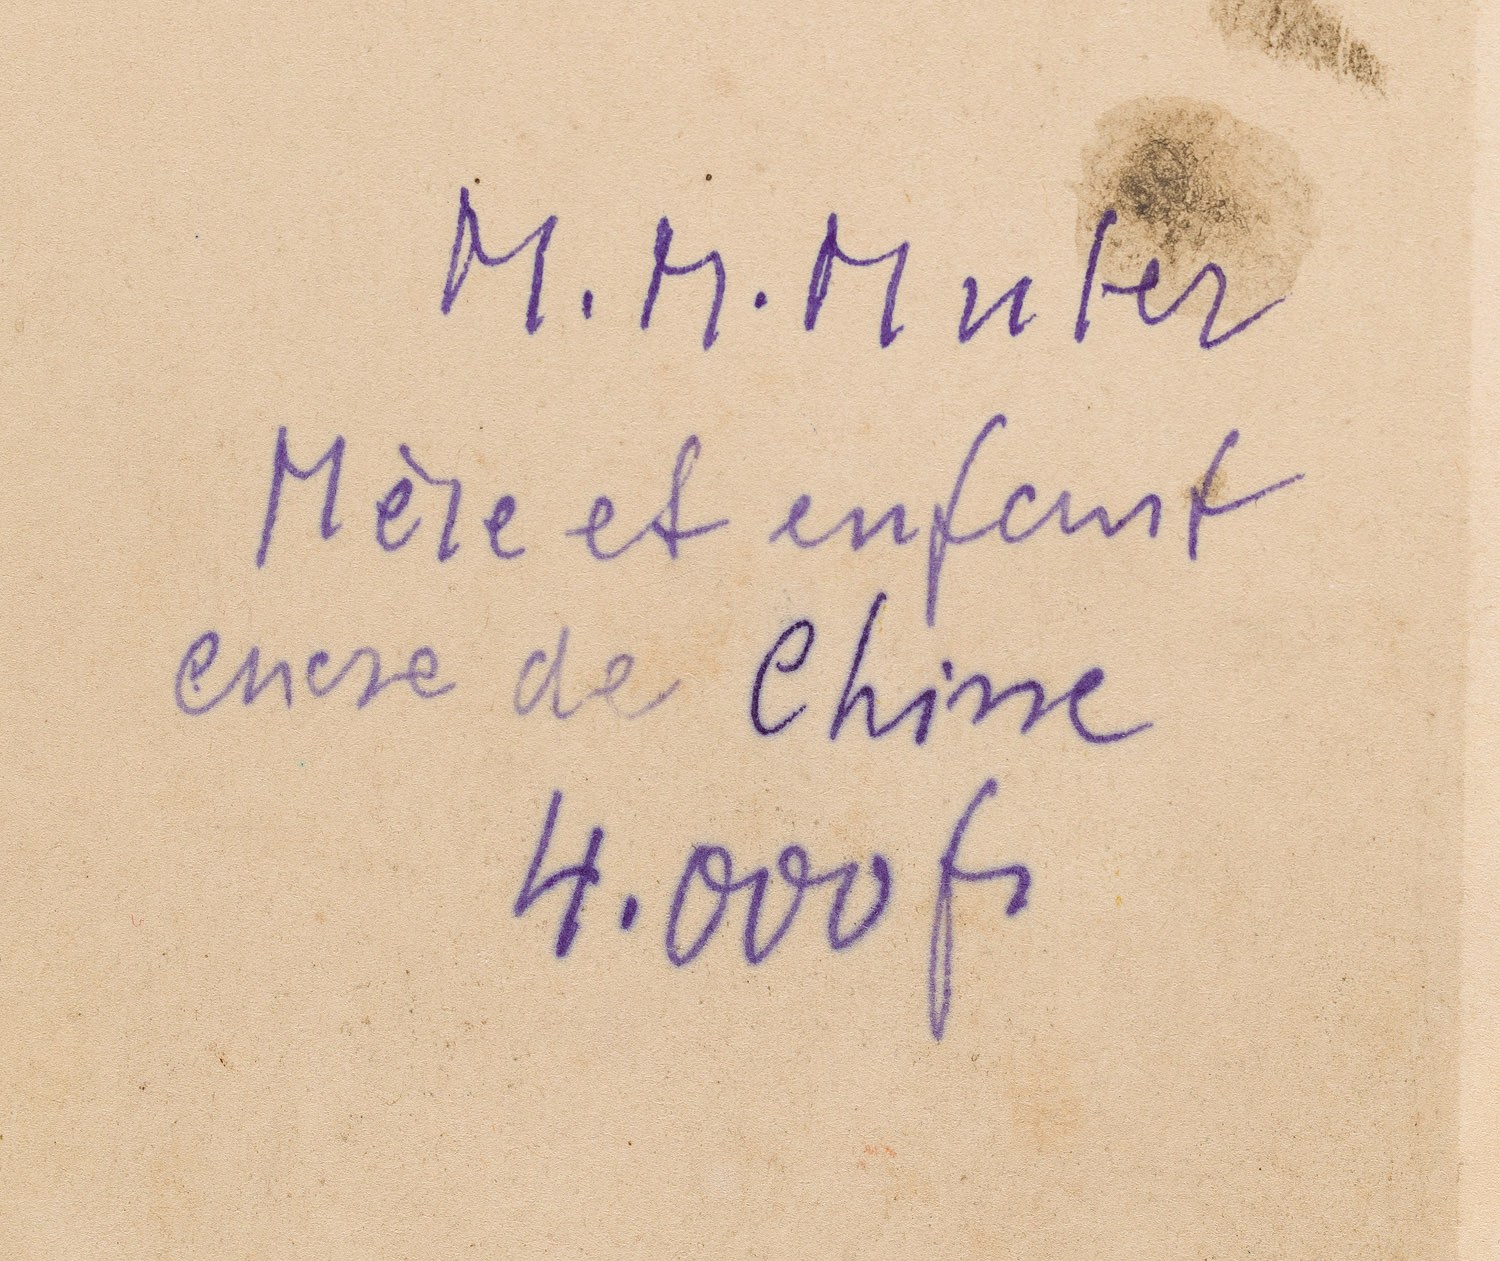 M. M. Muter
Mère et enfant
encre de Chine
4.000 fr